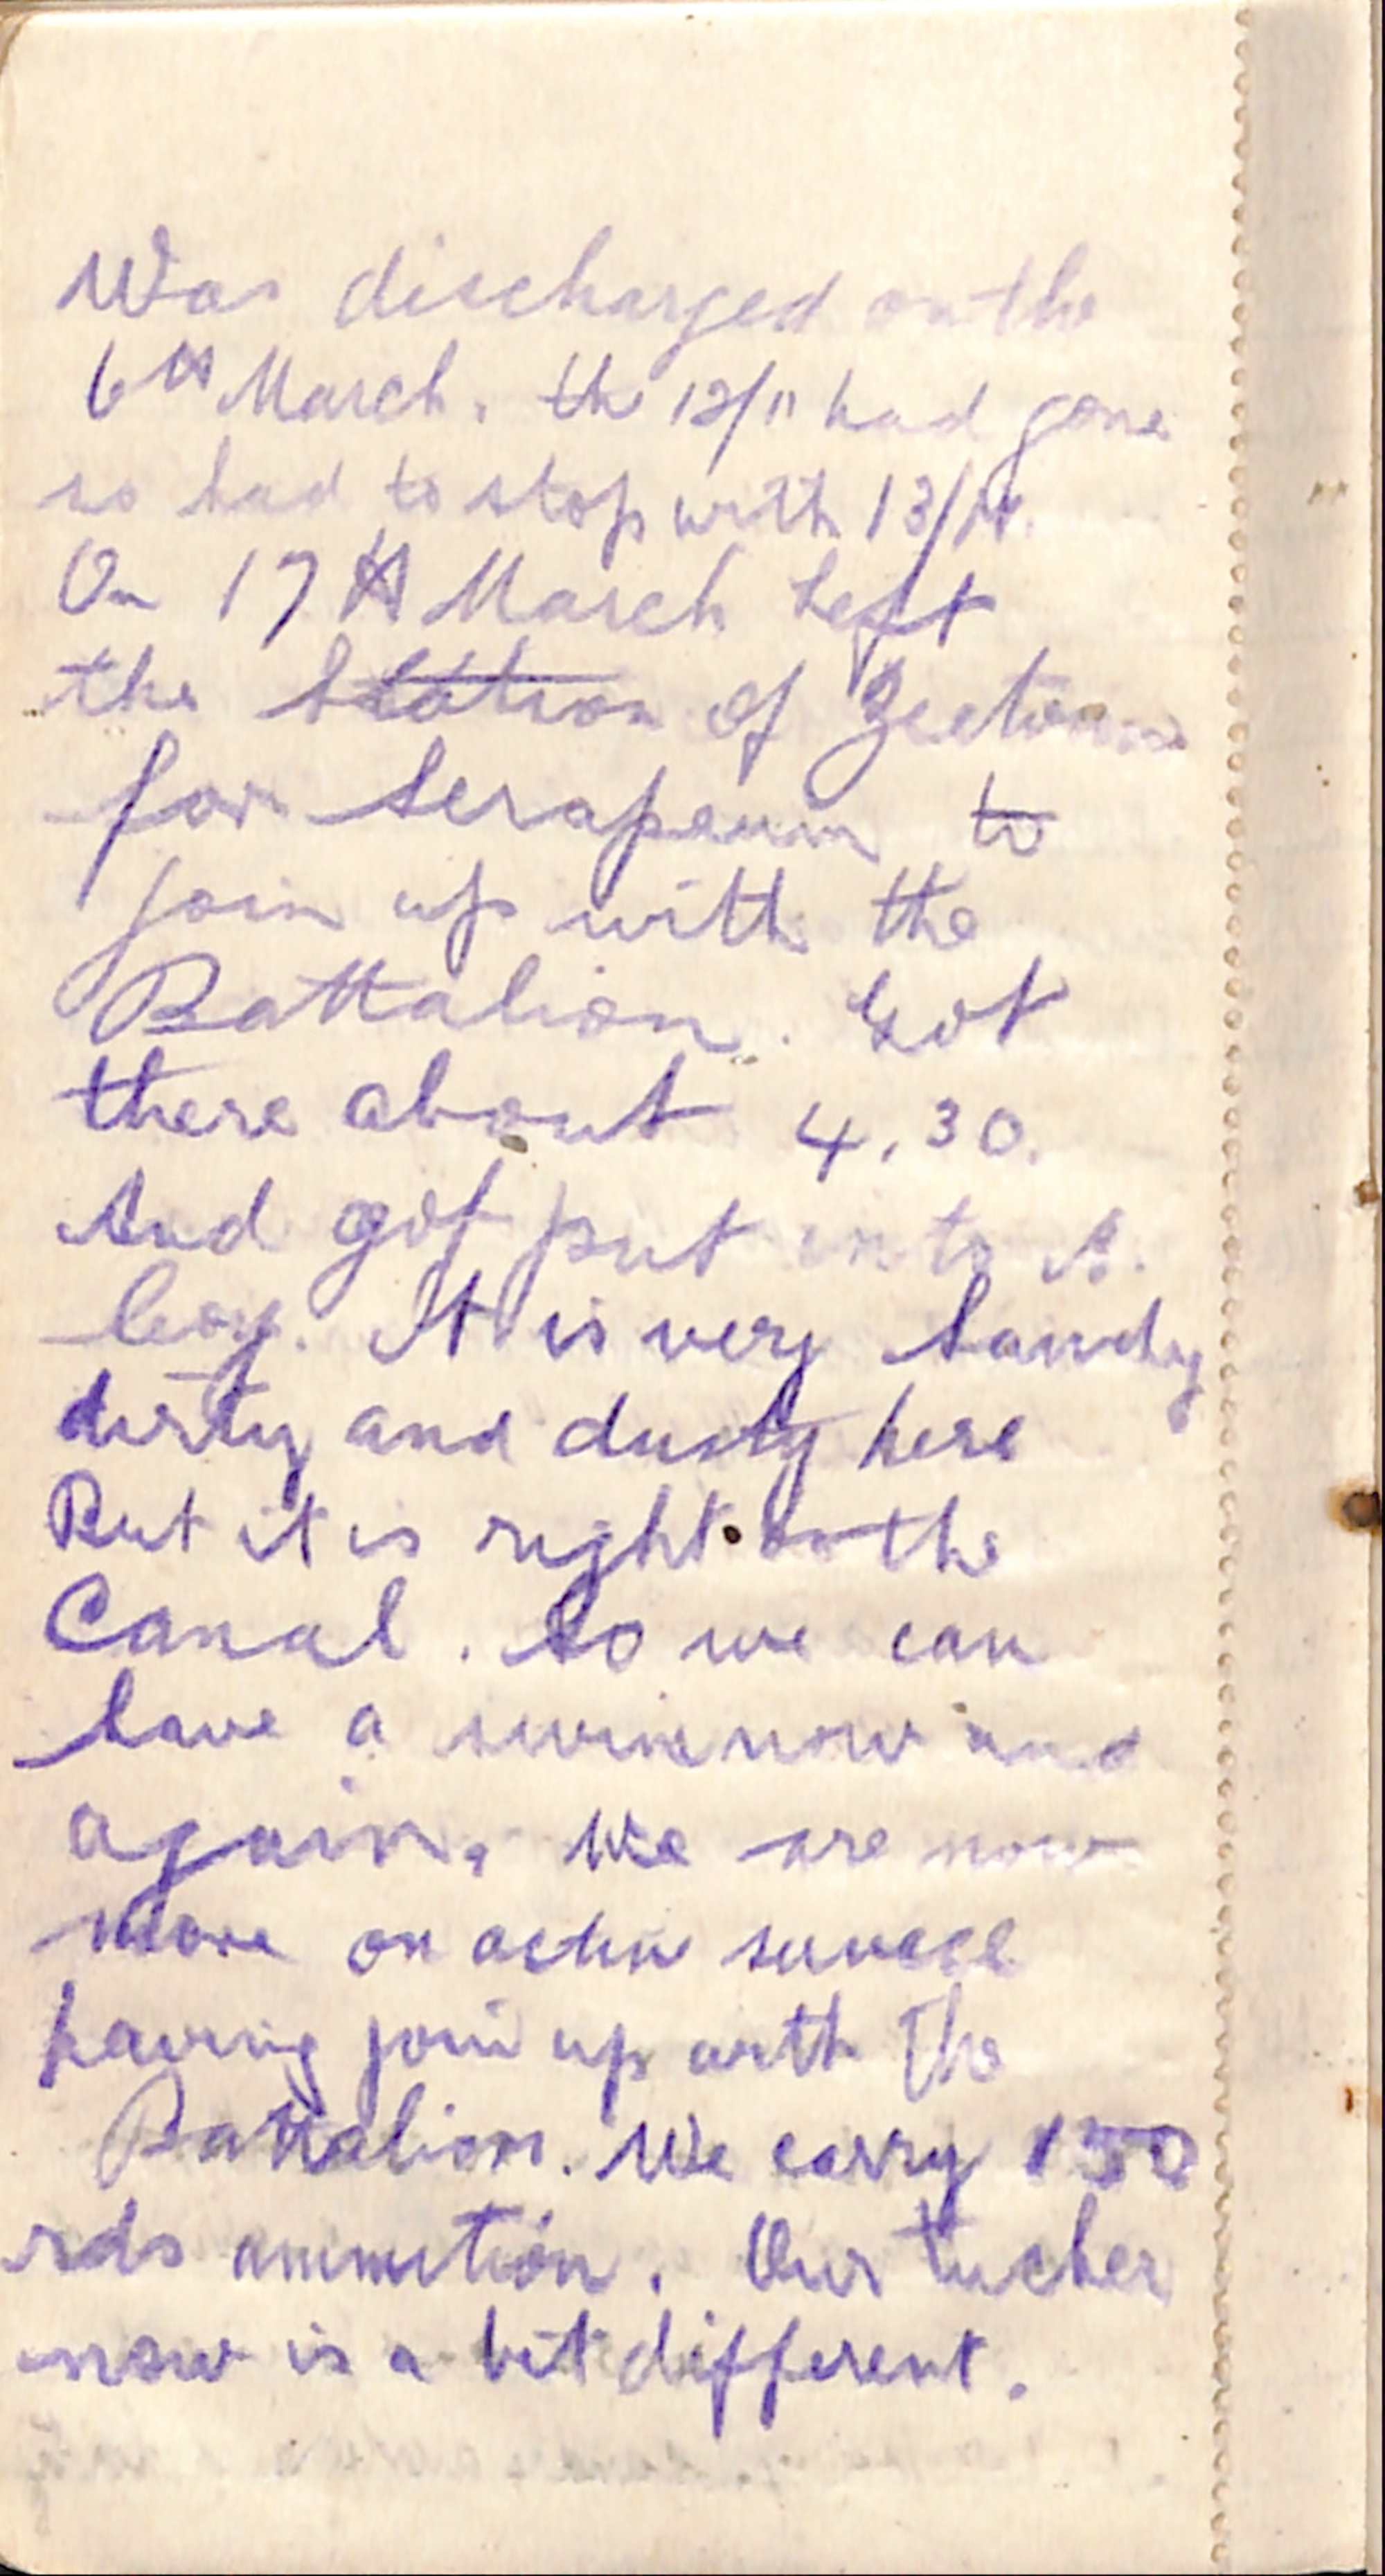 Was discharged on the
6th March. the 12/11 had gone
so had to stop with 13/11.
On 17th March Left
the Station of Zeetoun
for Serapeum to
join up with the
Battalion. Got
there about 4.30.
And got put into A.
Coy. It is very Sandy
dirty and dusty here
But it is right on the
Canal. So we can
have a swim now and
again. We are now
more on active service
having join up with the
Battalion. We carry 150
rds ammution. Our tucker
now is a bit different.